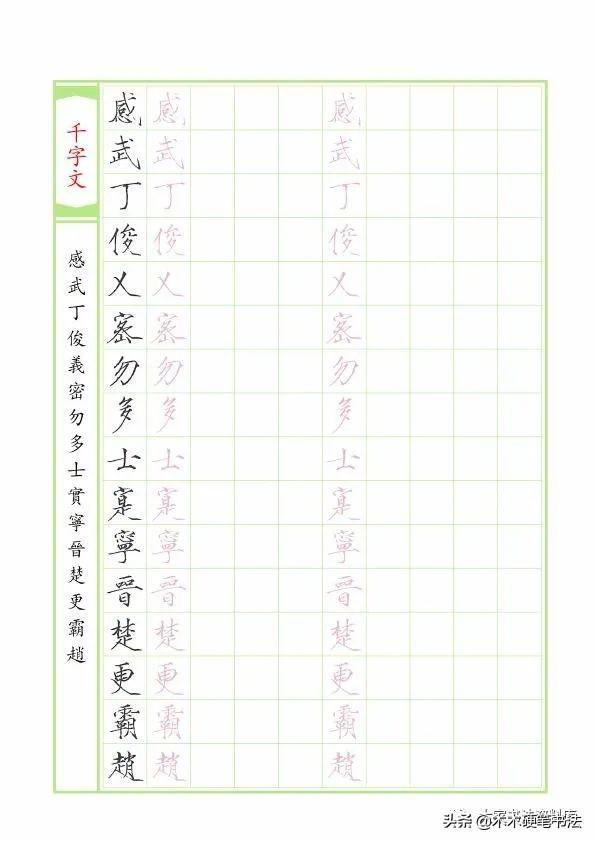 千字文
感武丁俊義密勿多士實寧晉楚更霸趙
感武丁俊乂密勿多士寔寧晉楚更霸趙
感武丁俊乂密勿多士寔寧晉楚更霸趙
感武丁俊乂密勿多士寔寧晉楚更霸趙
头条 @木木硬笔书法